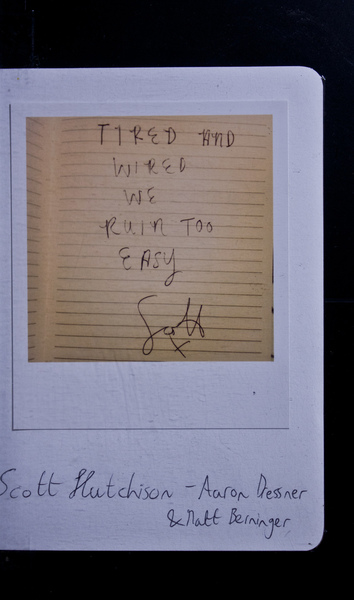 TIRED AND
WIRED
WE
RUIN TOO
EASY
Scott
x
Scott Hutchison - Aaron Dessner
& Matt Berninger